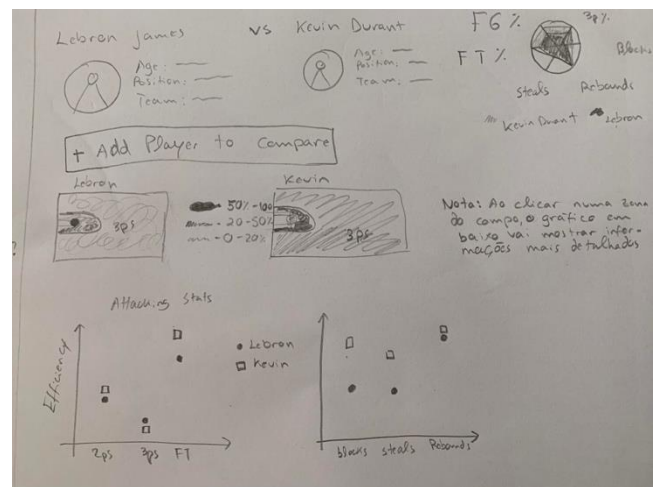 Lebron James
vs
Kevin Durant
Age:
Position:
Team:
Age:
Position:
Team:
FG%
3p%
FT%
Blocks
Steals
Rebounds
Kevin Durant
Lebron
+ Add Player to Compare
Lebron
3ps
50%-100
20-50%
0-20%
Kevin
3ps
Nota: Ao clicar numa zona
do campo, o gráfico em
baixo vai mostrar infor-
mações mais detalhadas
?
Attacking Stats
Efficiency
Lebron
Kevin
2ps
3ps
FT
blocks
steals
Rebounds